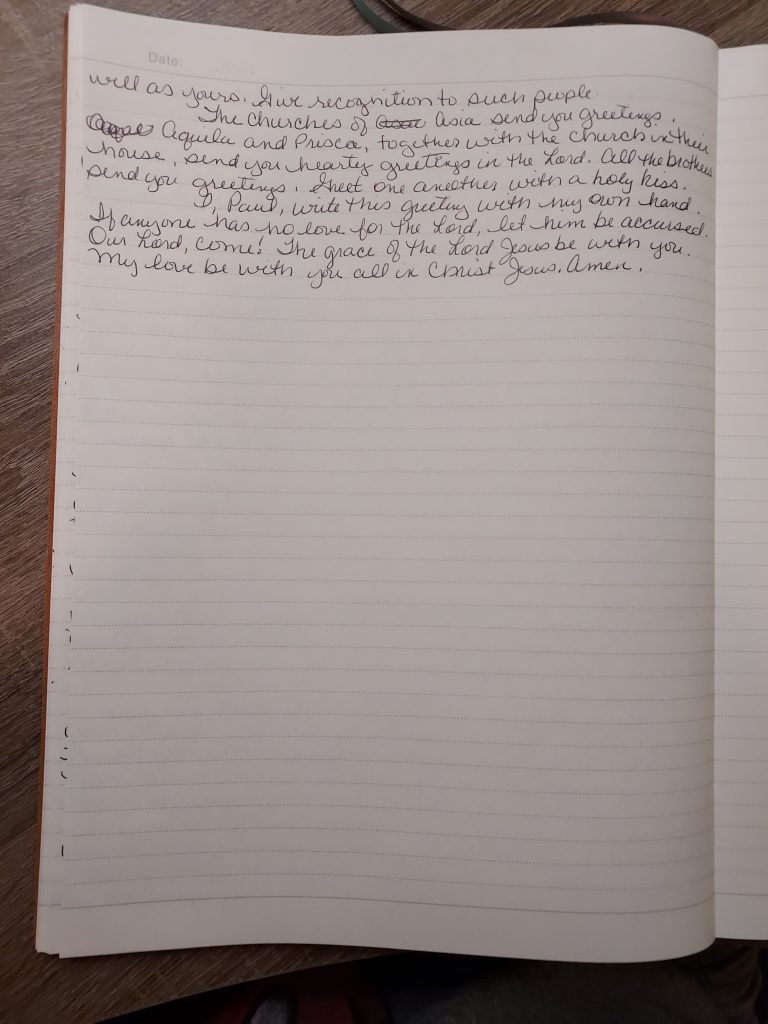 Date:
well as yours. Give recognition to such people.
The churches of Asia send you greetings.
Aquila and Prisca, together with the church in their
house, send you hearty greetings in the Lord. All the brothers
send you greetings. Greet one another with a holy kiss.
I, Paul, write this greeting with my own hand.
If anyone has no love for the Lord, let him be accursed.
Our Lord, come! The grace of the Lord Jesus be with you.
My love be with you all in Christ Jesus. Amen.